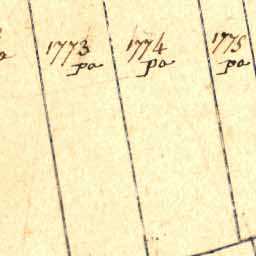 1773
pa
1774
pa
1775
pa
a